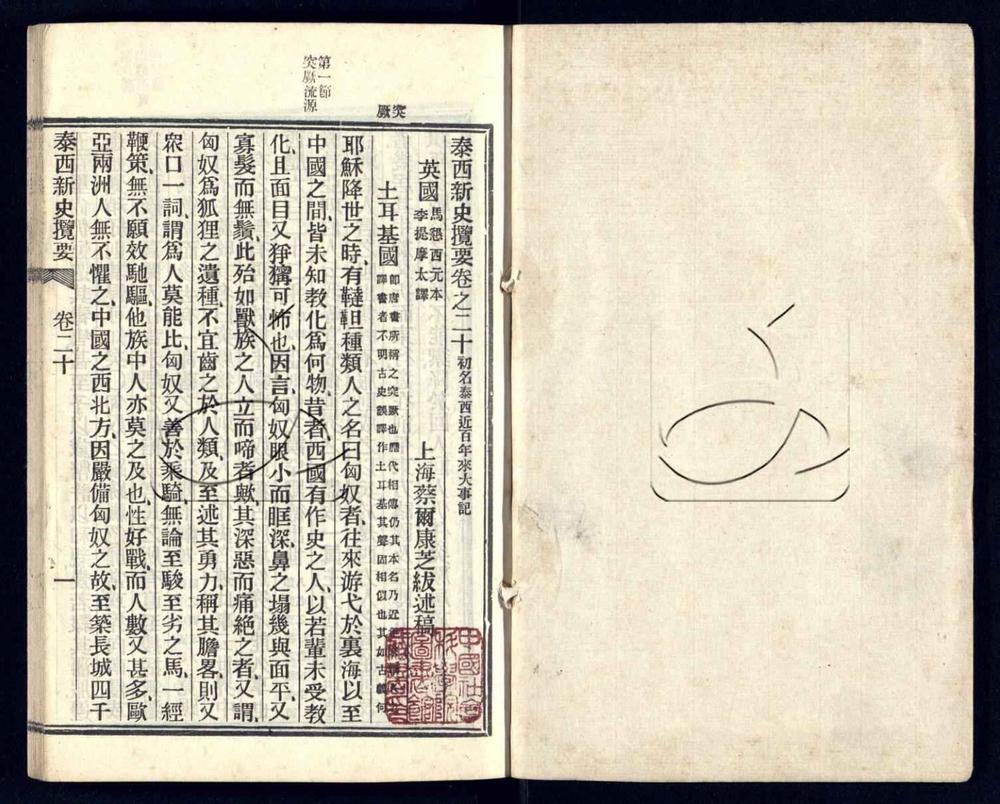 泰西新史攬要卷之二十初名泰西近百年來大事記
英國馬懇西元本
李提摩太譯
上海蔡爾康芝紱述稿
突厥
土耳基國卽唐書所稱之突厥也歷代相傳仍其本名乃近
譯書者不明古史誤譯作土耳基其聲固相似也其如古義何
第一節
突厥流源
耶穌降世之時、有韃靼種類人之名曰匈奴者、往來游弋於裏海以至
中國之間、皆未知教化爲何物、昔者、西國有作史之人、以若輩未受教
化、且面目又猙獰可怖也、因言、匈奴眼小而眶深、鼻之塌幾與面平、又
寡髮而無鬚、此殆如獸族之人立而啼者歟、其深惡而痛絕之者、又謂、
匈奴爲狐狸之遺種、不宜齒之於人類、及至述其勇力、稱其膽畧、則又
衆口一詞、謂爲人莫能比、匈奴又善於乘騎、無論至駿至劣之馬、一經
鞭策、無不願效馳驅、他族中人亦莫之及也、性好戰、而人數又甚多、歐
亞兩洲人無不懼之、中國之西北方、因嚴備匈奴之故、至築長城四千
泰西新史攬要
卷二十
一